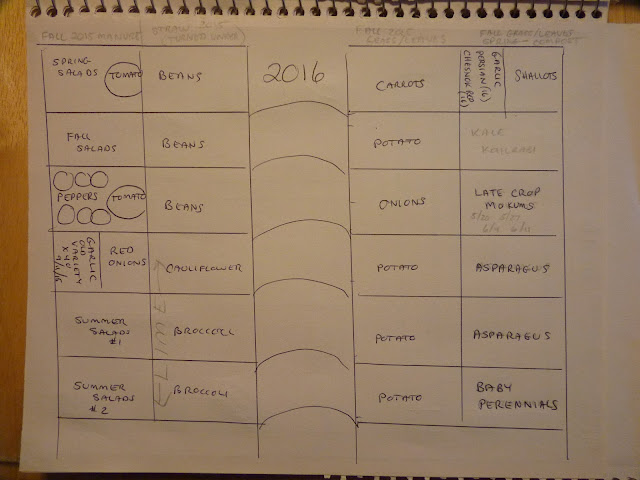 FALL 2015 MANURE
STRAW 2015
(TURNED UNDER)
FALL 2015
GRASS/LEAVES
FALL GRASS/LEAVES
SPRING - COMPOST
SPRING
SALADS
TOMATO
BEANS
2016
CARROTS
GARLIC
PERSIAN (16)
CHESNEK RED
(16)
SHALLOTS
FALL
SALADS
BEANS
POTATO
KALE
KOHLRABI
PEPPERS
TOMATO
BEANS
ONIONS
LATE CROP
MOKUMS
5/20 5/27
6/4 6/11
GARLIC
OLD
VARIETY
X 40
RED
ONIONS
CAULIFLOWER
POTATO
ASPARAGUS
SUMMER
SALADS
#1
BROCCOLI
POTATO
ASPARAGUS
SUMMER
SALADS
#2
BROCCOLI
POTATO
BABY
PERENNIALS